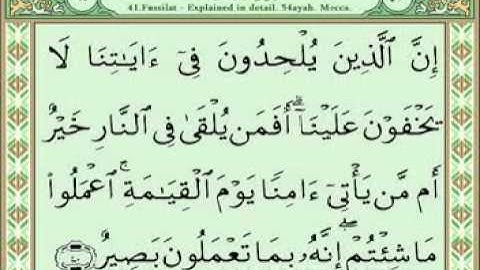 41.Fussilat - Explained in detail. 54ayah. Mecca.
إِنَّ ٱلَّذِينَ يُلْحِدُونَ فِىٓ ءَايَـٰتِنَا لَا
يَخْفَوْنَ عَلَيْنَآ ۗ أَفَمَن يُلْقَىٰ فِى ٱلنَّارِ خَيْرٌ
أَم مَّن يَأْتِىٓ ءَامِنًا يَوْمَ ٱلْقِيَـٰمَةِ ۚ ٱعْمَلُوا۟
مَا شِئْتُمْ ۖ إِنَّهُۥ بِمَا تَعْمَلُونَ بَصِيرٌ ٤٠